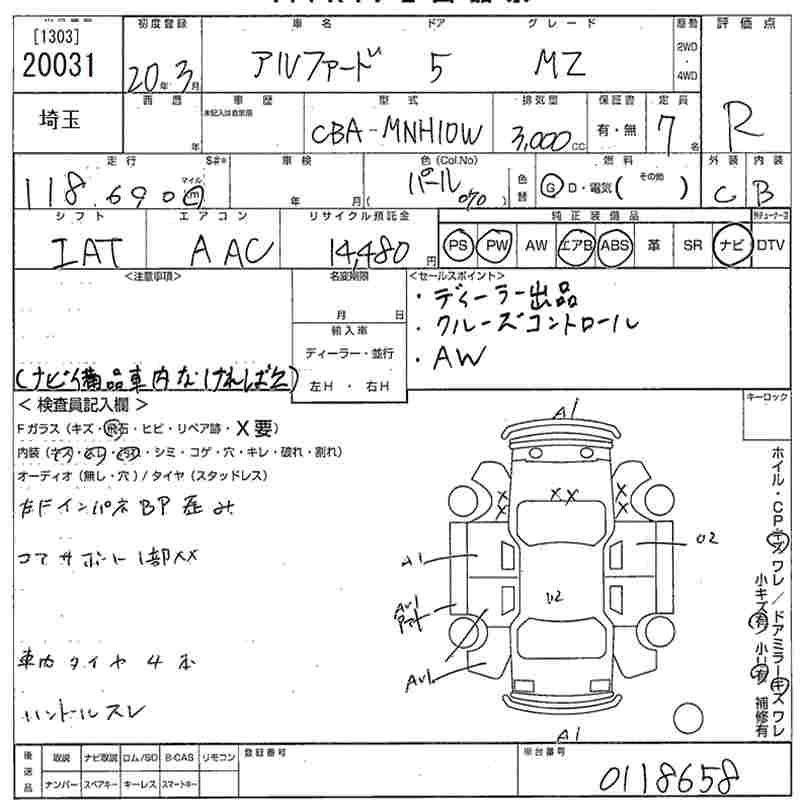 [1303]
20031
初度登録
20年3月
車名
アルファード
ドア
5
グレード
MZ
駆動
2WD
4WD
評価点
R
埼玉
西暦
年
車歴
未記入は自家用
型式
CBA-MNH10W
排気量
3,000cc
保証書
有・無
定員
7名
走行
118,690
マイル
km
S#*
車検
年 月
色(Col.No)
パール
070
色替
燃料
G D・電気( その他 )
外装
C
内装
B
シフト
IAT
エアコン
AAC
リサイクル預託金
14,480円
純正装備品
PS PW AW エアB ABS 革 SR ナビ DTV
<注意事項>
(ナビ備品車内なければ欠)
名変期限
月 日
輸入車
ディーラー・並行
左H・右H
<セールスポイント>
・ディーラー出品
・クルーズコントロール
・AW
キーロック
<検査員記入欄>
Fガラス(キズ・飛石・ヒビ・リペア跡・X要)
内装(キズ・スレ・汚れ・シミ・コゲ・穴・キレ・破れ・割れ)
オーディオ(無し・穴)/タイヤ(スタッドレス)
コアサポート1部XX
車内タイヤ4本
ハンドルスレ
A1
XX
X
X
X
X
A1
U2
U2
A1
ホイル・CPキズ ワレ/ドアミラーキズ ワレ
小キズ有 小U有 補修有
後送品
取説 ナビ取説 ロム/SD B-CAS リモコン
ナンバー スペアキー キーレス スマートキー
登録番号
車台番号
0118658